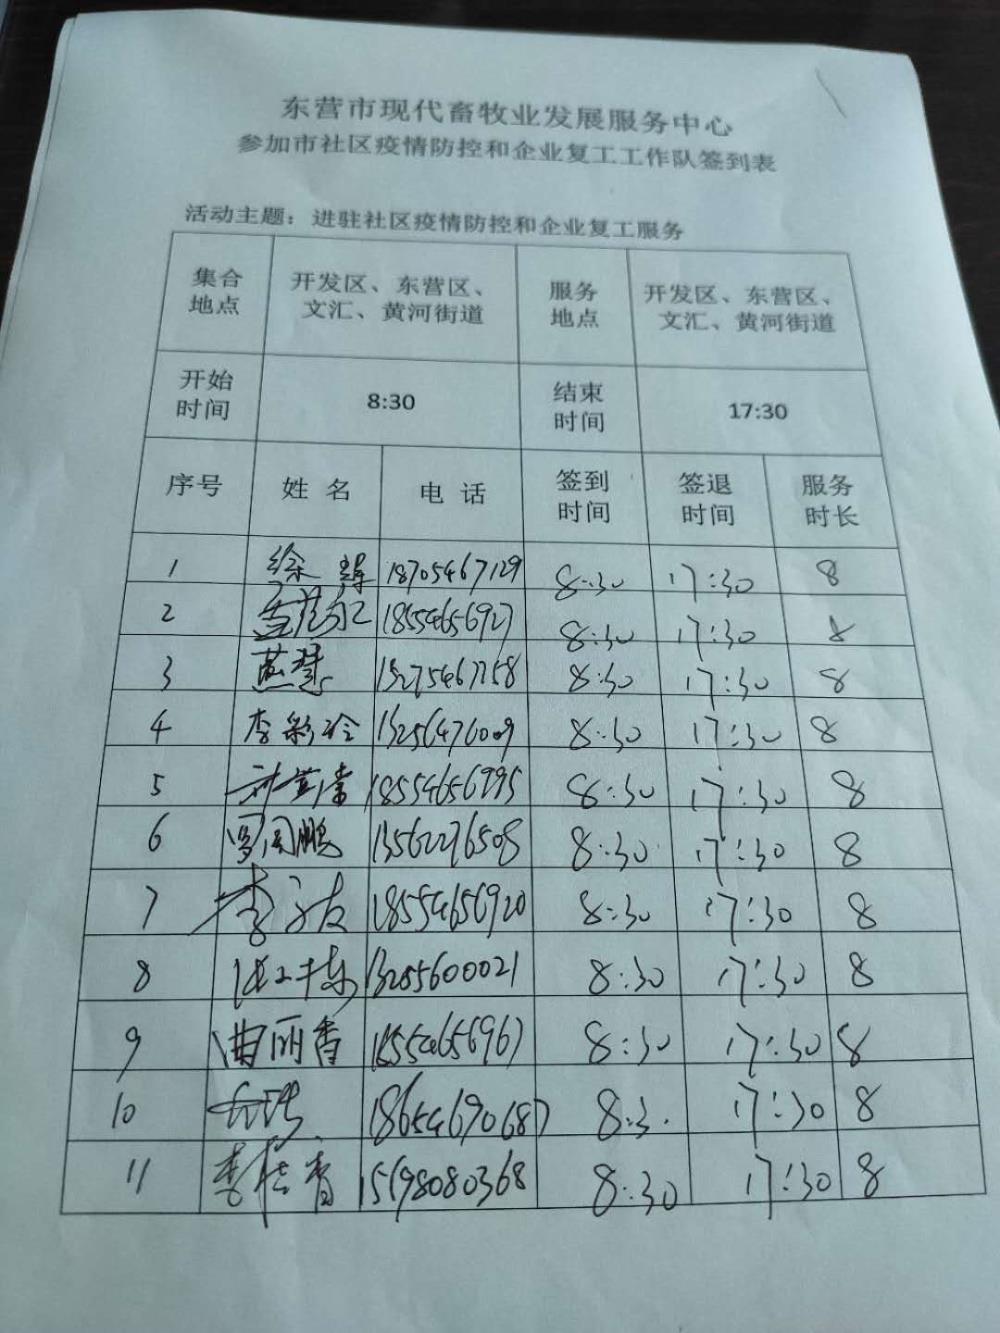 东营市现代畜牧业发展服务中心
参加市社区疫情防控和企业复工工作队签到表
活动主题：进驻社区疫情防控和企业复工服务
集合地点 开发区、东营区、文汇、黄河街道 服务地点 开发区、东营区、文汇、黄河街道
开始时间 8:30 结束时间 17:30
序号 姓名 电话 签到时间 签退时间 服务时长
1 徐 18705467129 8:30 17:30 8
2 18554656927 8:30 17:30 8
3 燕 15275467758 8:30 17:30 8
4 李彩玲 13256476009 8:30 17:30 8
5 18554656995 8:30 17:30 8
6 罗国鹏 13562276508 8:30 17:30 8
7 李子友 18554656920 8:30 17:30 8
8 13285600021 8:30 17:30 8
9 曲丽香 18554656967 8:30 17:30 8
10 18654690687 8:3. 17:30 8
11 李桂香 15698080368 8:30 17:30 8